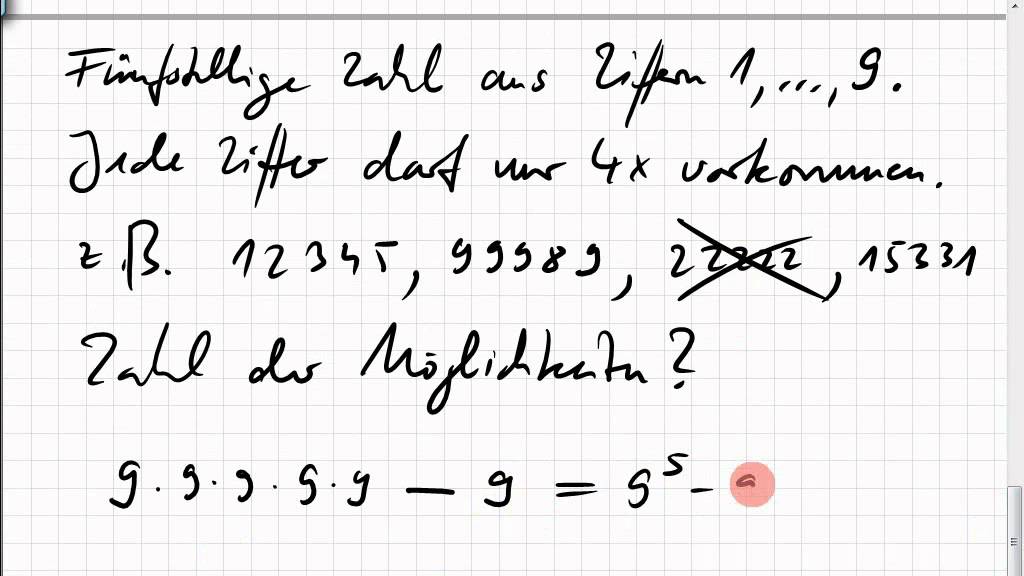 Fünfstellige Zahl aus Ziffern 1, ..., 9.
Jede Ziffer darf nur 4x vorkommen.
z.B. 12345, 99989, 22222, 15331
Zahl der Möglichkeiten?
9 · 9 · 9 · 9 · 9 — 9 = 9⁵ - 9